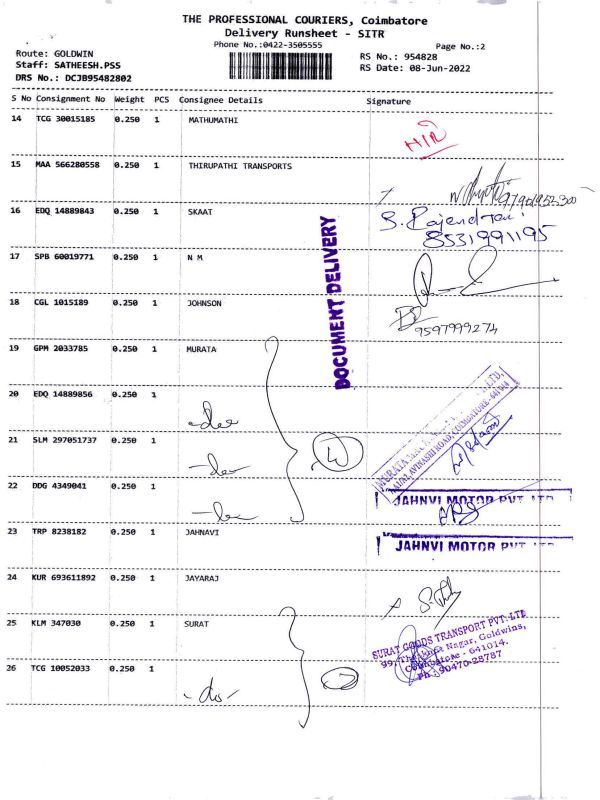 THE PROFESSIONAL COURIERS, Coimbatore
Delivery Runsheet - SITR
Phone No.:0422-3505555
Page No.:2
Route: GOLDWIN
Staff: SATHEESH.PSS
DRS No.: DCJB95482802
RS No.: 954828
RS Date: 08-Jun-2022
S No Consignment No Weight PCS Consignee Details Signature
14 TCG 30015185 0.250 1 MATHUMATHI
15 MAA 566280558 0.250 1 THIRUPATHI TRANSPORTS
16 EDQ 14889843 0.250 1 SKAAT
S. Rajendran
8531991195
17 SPB 60019771 0.250 1 N M
18 CGL 1015189 0.250 1 JOHNSON
9597999274
DOCUMENT DELIVERY
19 GPM 2033785 0.250 1 MURATA
20 EDQ 14889856 0.250 1
-do-
21 SLM 297051737 0.250 1
-do-
22 DDG 4349041 0.250 1
-do-
JAHNVI MOTOR PVT LTD
23 TRP 8238182 0.250 1 JAHNAVI
JAHNVI MOTOR PVT LTD
24 KUR 693611892 0.250 1 JAYARAJ
25 KLM 347030 0.250 1 SURAT
SURAT GOODS TRANSPORT PVT. LTD
Nagar, Goldwins,
Coimbatore - 641014.
Ph : 90470-28787
26 TCG 10052033 0.250 1
-do-